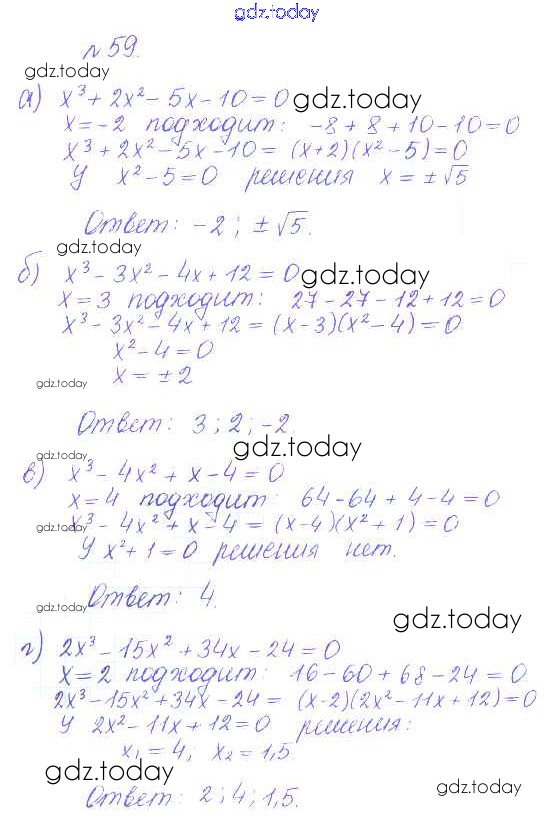 gdz.today
№ 59.
gdz.today
а) x³ + 2x² - 5x - 10 = 0 gdz.today
x = -2 подходит: -8 + 8 + 10 - 10 = 0
x³ + 2x² - 5x - 10 = (x+2)(x² - 5) = 0
У x² - 5 = 0 решения x = ± √5
Ответ: -2; ± √5.
gdz.today
б) x³ - 3x² - 4x + 12 = 0 gdz.today
x = 3 подходит: 27 - 27 - 12 + 12 = 0
x³ - 3x² - 4x + 12 = (x-3)(x² - 4) = 0
x² - 4 = 0
x = ± 2
gdz.today
Ответ: 3; 2; -2.
gdz.today
в) x³ - 4x² + x - 4 = 0
x = 4 подходит: 64 - 64 + 4 - 4 = 0
gdz.today
x³ - 4x² + x - 4 = (x-4)(x² + 1) = 0
У x² + 1 = 0 решения нет.
Ответ: 4.
gdz.today
gdz.today
г) 2x³ - 15x² + 34x - 24 = 0
x = 2 подходит: 16 - 60 + 68 - 24 = 0
gdz.today
2x³ - 15x² + 34x - 24 = (x-2)(2x² - 11x + 12) = 0
У 2x² - 11x + 12 = 0 решения:
x₁ = 4; x₂ = 1,5.
gdz.today
gdz.today
Ответ: 2; 4; 1,5.